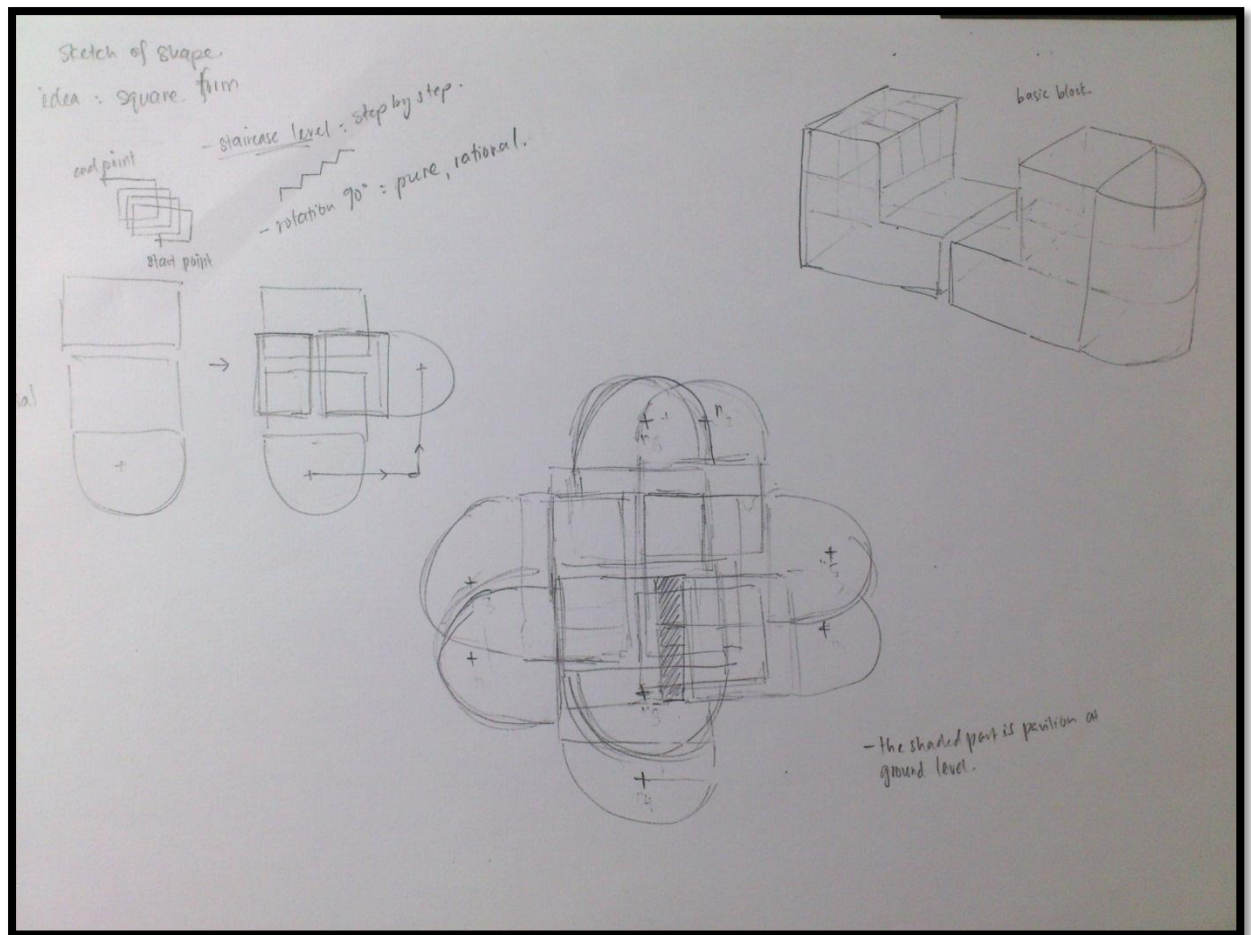 sketch of shape.
idea : square form
- staircase level : step by step.
- rotation 90° : pure, rational.
end point
start point
basic block.
n2
n4
- the shaded part is pavilion at
ground level.